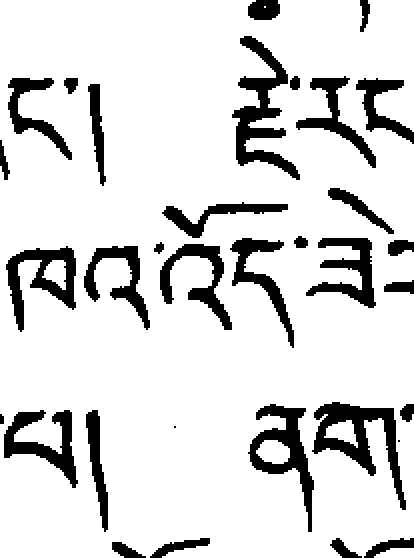 ང་། རྗེ་རང
ཁའ་འོད་ཟེ
པ། ནག་